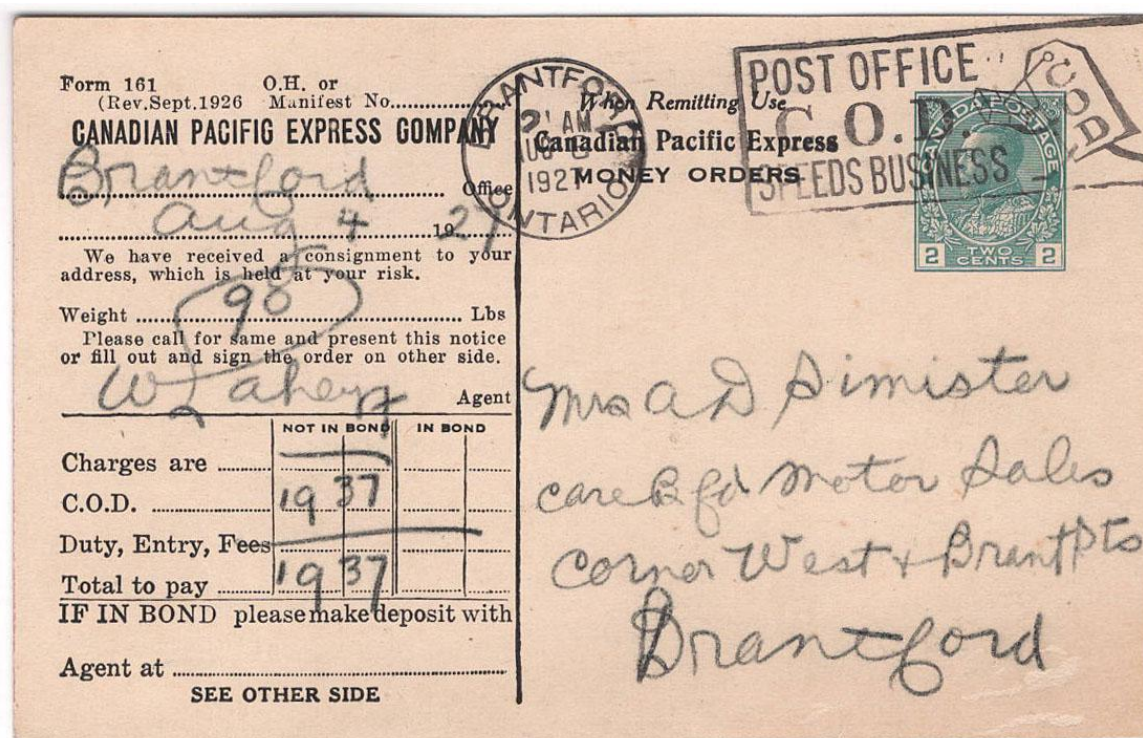 Form 161 O.H. or
(Rev.Sept.1926 Manifest No.
CANADIAN PACIFIC EXPRESS COMPANY
Brantford Office
Aug 4 1927
We have received a consignment to your
address, which is held at your risk.
Weight 90 Lbs
Please call for same and present this notice
or fill out and sign the order on other side.
W Lahey Agent
NOT IN BOND IN BOND
Charges are
C.O.D. 19 37
Duty, Entry, Fees
Total to pay 19 37
IF IN BOND please make deposit with
Agent at
SEE OTHER SIDE
BRANTFORD
AM
AUG
1927
ONTARIO
When Remitting Use
Canadian Pacific Express
MONEY ORDERS
POST OFFICE
C.O.D.
SPEEDS BUSINESS
COD
CANADA POSTAGE
2 TWO CENTS 2
Mrs A D Simister
care Bfd Motor Sales
corner West + Brant Sts
Brantford